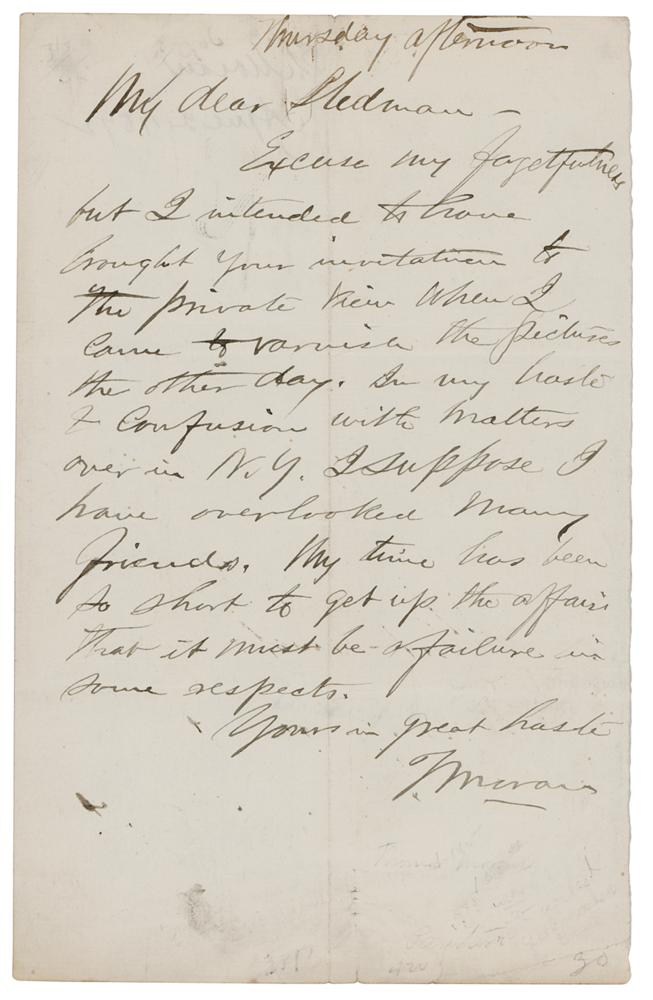 Thursday afternoon
My dear Stedman –
Excuse my forgetfulness
but I intended to have
brought your invitation to
the private view when I
came to varnish the pictures
the other day. In my haste
& confusion with matters
over in N.Y. I suppose I
have overlooked many
friends. My time has been
so short to get up the affair
that it must be a failure in
some respects.
Yours in great haste
TMoran
30